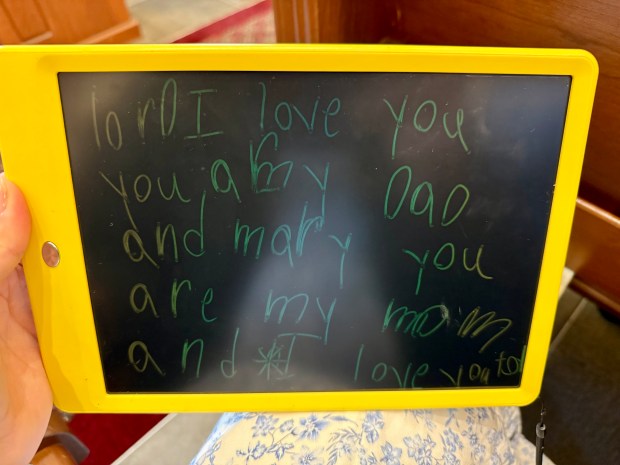 lord I love you
you a my Dad
and mary you
are my mom
and I love you to